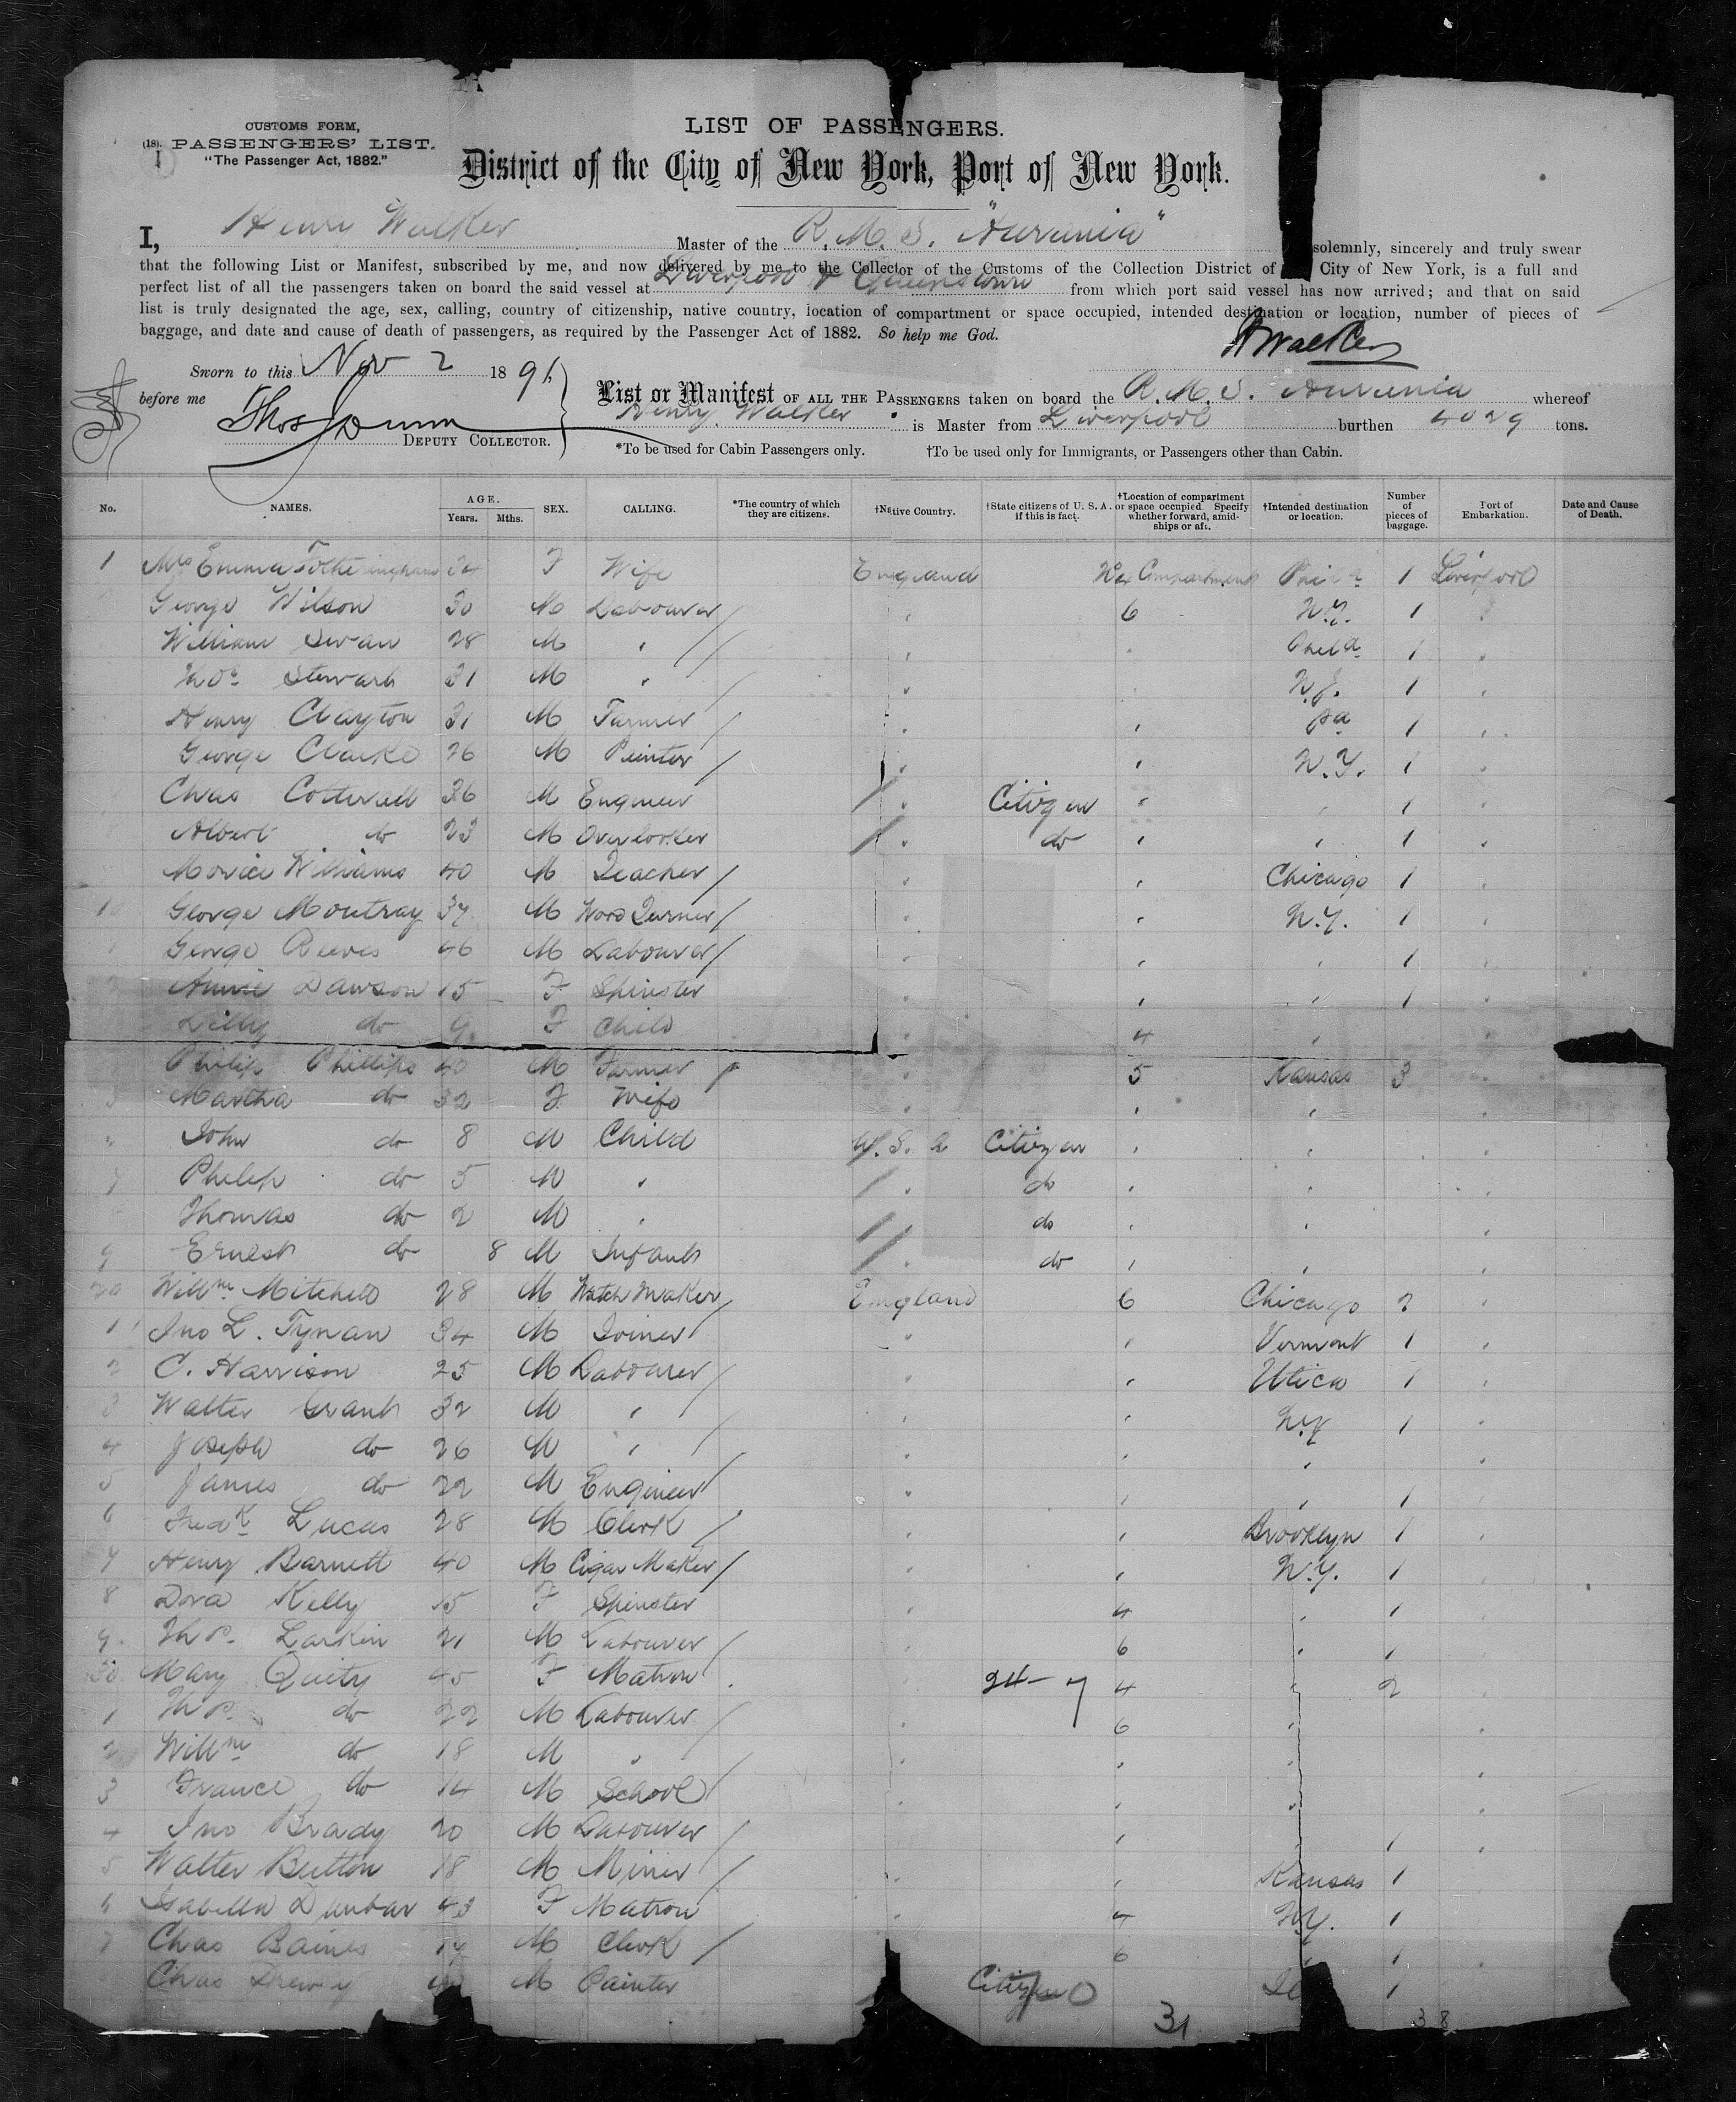 CUSTOMS FORM,
(18). PASSENGERS' LIST.
"The Passenger Act, 1882."
1
LIST OF PASSENGERS.
District of the City of New York, Port of New York.
I, Henry Walker Master of the R.M.S. "Aurania" solemnly, sincerely and truly swear
that the following List or Manifest, subscribed by me, and now delivered by me to the Collector of the Customs of the Collection District of City of New York, is a full and
perfect list of all the passengers taken on board the said vessel at Liverpool & Queenstown from which port said vessel has now arrived; and that on said
list is truly designated the age, sex, calling, country of citizenship, native country, location of compartment or space occupied, intended destination or location, number of pieces of
baggage, and date and cause of death of passengers, as required by the Passenger Act of 1882. So help me God.
HWalker
Sworn to this Nov 2 189
before me
Thos Dunn
DEPUTY COLLECTOR.
List or Manifest OF ALL THE PASSENGERS taken on board the R.M.S. Aurania whereof
Henry Walker is Master from Liverpool burthen 4029 tons.
*To be used for Cabin Passengers only. †To be used only for Immigrants, or Passengers other than Cabin.
No. NAMES. AGE. Years. Mths. SEX. CALLING. *The country of which they are citizens. †Native Country. †State citizens of U. S. A. if this is fact. †Location of compartment or space occupied. Specify whether forward, amidships or aft. †Intended destination or location. Number of pieces of baggage. Port of Embarkation. Date and Cause of Death.
1 Mrs Emma Fotheringham 34 F Wife England No 4 Compartment Phila 1 Liverpool
George Wilson 30 M Labourer / " 6 N.Y. 1 "
William Swan 28 M " / " " Phila 1 "
Thos Stewart 31 M " / " " N.J. 1 "
Henry Clayton 31 M Farmer / " " Pa 1 "
George Clarke 26 M Painter / " " N.Y. 1 "
Chas Cotterall 36 M Engineer / " Citizen " " 1 "
Albert do 23 M Overlooker / " do " " 1 "
Morice Williams 40 M Teacher / " " Chicago 1 "
10 George Moutray 37 M Wood Turner / " " N.Y. 1 "
1 George Reeves 46 M Labourer / " " " 1 "
Annie Dawson 15 F Spinster " " " 1 "
Lilly do 9 F Child " 4 " "
Philip Phillips 40 M Farmer / " 5 Kansas 3 "
Martha do 32 F Wife " " " "
John do 8 M Child U.S.A. Citizen " " "
7 Philip do 5 M " / " do " " "
Thomas do 2 M " / " do " " "
9 Ernest do 8 M Infant / " do " " "
20 Willm Mitchell 28 M Watch Maker / England 6 Chicago 2 "
1 Jno L. Tynan 34 M Joiner / " " Vermont 1 "
2 C. Harrison 25 M Labourer / " " Utica 1 "
3 Walter Grant 32 M " / " " N.Y 1 "
4 Joseph do 26 M " / " " " "
5 James do 22 M Engineer / " " " 1 "
6 Fredk Lucas 28 M Clerk / " " Brooklyn 1 "
7 Henry Barnett 40 M Cigar Maker / " " N.Y. 1 "
8 Dora Kelly 15 F Spinster " 4 " 1 "
9 Thos Larkin 21 M Labourer / " 6 " 1 "
30 Mary Quity 45 F Matron " 24-7 4 " 2 "
1 Thos do 22 M Labourer / " 6 " "
2 Willm do 18 M " / " " " "
3 France do 14 M School / " " " "
4 Jno Brady 20 M Labourer / " 1 "
5 Walter Button 18 M Miner / " " Kansas 1 "
6 Isabella Dunbar 43 F Matron " 4 N.Y. 1 "
7 Chas Baines M Clerk / 6 " 1 "
Chas Drewry M Painter Citizen 1
31 38